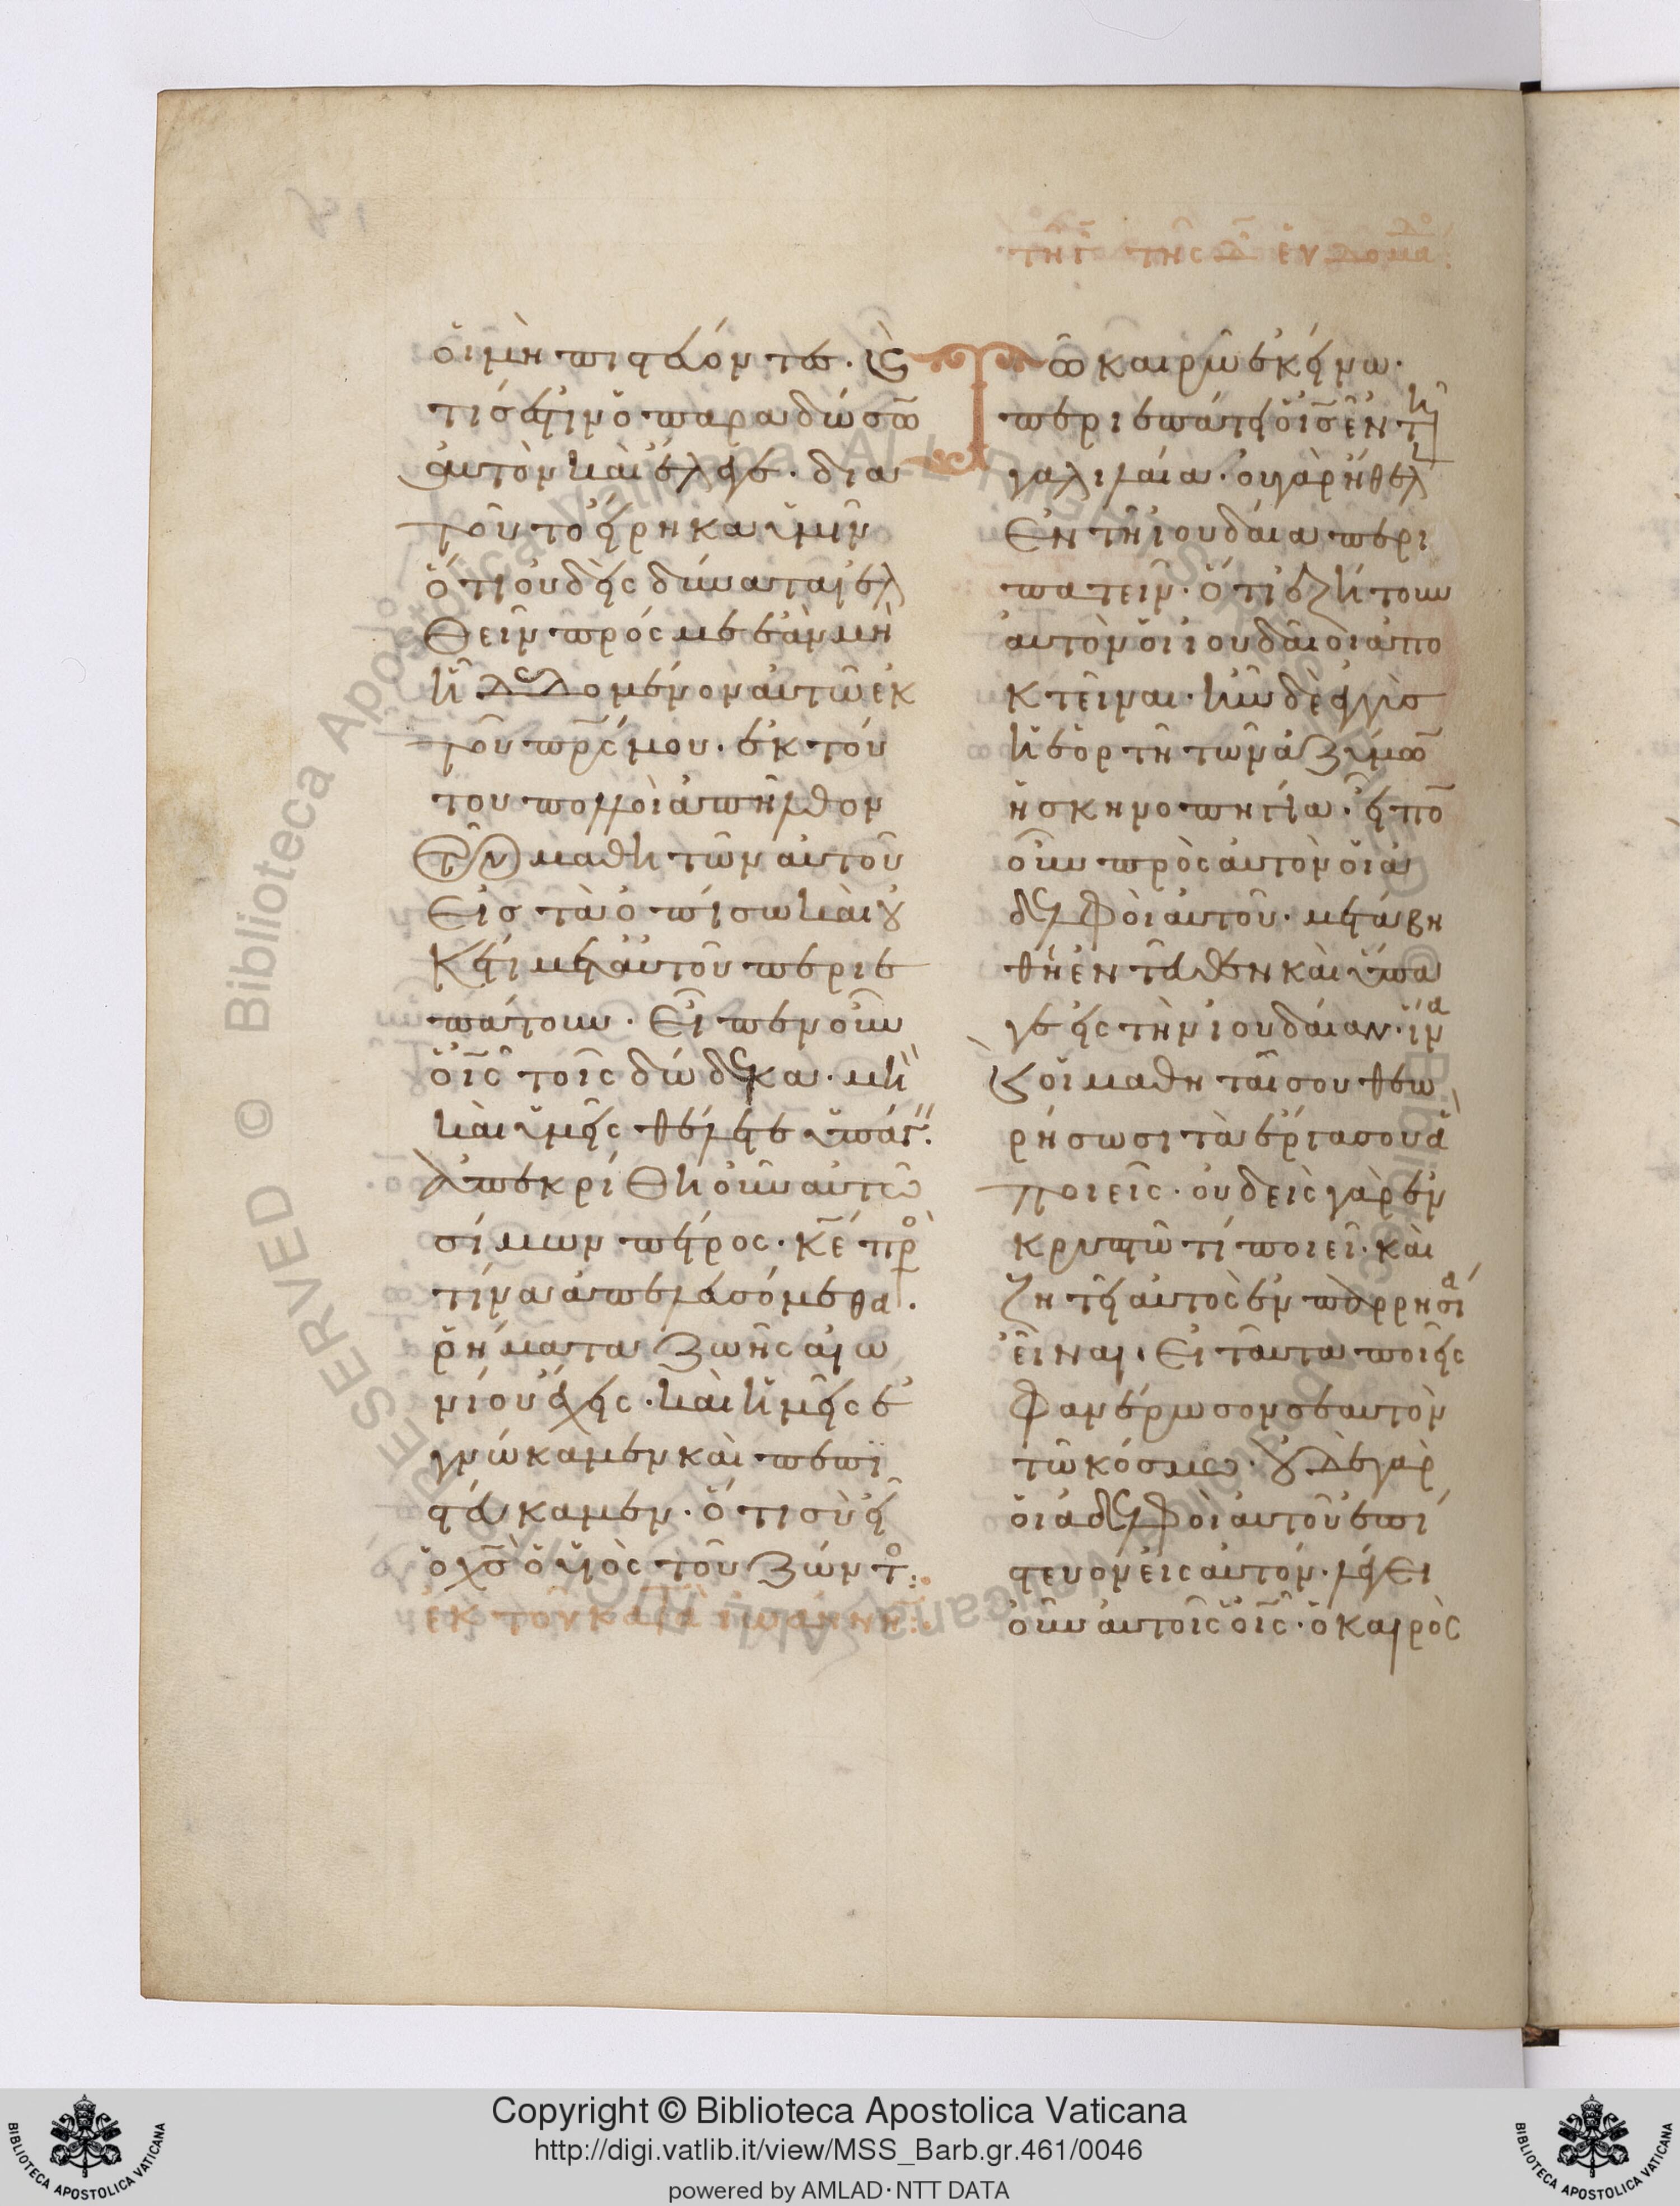 τῆ γ τῆς δ ἑβδομάδο:
οἱ μὴ πιστεύοντες. καὶ
τίς ἐστιν ὁ παραδώσων
αὐτὸν καὶ ἔλεγε. δια
τοῦτο εἴρηκα ὑμῖν
ὅτι οὐδεὶς δύναται ἐλ
θεῖν πρός με ἐὰν μὴ
ἦ δεδομένον αὐτῶ ἐκ
τοῦ πρ̅ς μου. ἐκ τού
του πολλοὶ ἀπῆλθον
τῶν μαθητῶν αὐτοῦ
εἰς τὰ ὀπίσω καὶ οὐ
κέτι μετ' αὐτοῦ περιε
πάτουν. εἶπεν οὖν
ὁ ι̅ς τοῖς δώδεκα. μὴ
καὶ ὑμεῖς θέλετε ὑπάγ.
Ἀπεκρίθη οὖν αὐτῶ
σίμων πέτρος. κ̅ε πρὸ
τίνα ἀπελευσόμεθα.
ῥήματα ζωῆς αἰω
νίου ἔχεις. καὶ ἡμεῖς ἐ
γνώκαμεν καὶ πεπι
στεύκαμεν. ὅτι σὺ εἶ
ὁ χ̅ς ὁ υἱὸς τοῦ ζῶντο:
ἐκ τοῦ κατὰ ἰωάννην:
Τῶ καιρῶ ἐκείνω.
περιεπάτει ὁ ι̅ς ἐν τῆ
γαλιλαία. οὐ γὰρ ἤθελ
ἐν τῆ ἰουδαία περι
πατεῖν. ὅτι ἐζήτουν
αὐτὸν οἱ ἰουδαῖοι ἀπο
κτεῖναι. ἦν δὲ ἐγγὺς
ἡ ἑορτὴ τῶν ἀζύμων
ἡ σκηνοπηγία. εἶπο
οὖν πρὸς αὐτὸν οἱ ἀ
δελφοὶ αὐτοῦ. μετάβη
θη ἐντεῦθεν καὶ ὕπα
γε εἰς τὴν ἰουδαίαν. ἵνα
καὶ οἱ μαθηταί σου θεω
ρήσωσι τὰ ἔργα σου ἃ
ποιεῖς. οὐδεὶς γὰρ ἐν
κρυπτῶ τί ποιεῖ. καὶ
ζητεῖ αὐτὸς ἐν παρρησία
εἶναι. εἰ ταῦτα ποιεῖς
φανέρωσον σεαυτὸν
τῶ κόσμω. οὐδὲ γὰρ
οἱ ἀδελφοὶ αὐτοῦ ἐπί
στευον εἰς αὐτόν. λέγει
οὖν αὐτοῖς ὁ ι̅ς. ὁ καιρὸς
Copyright © Biblioteca Apostolica Vaticana
http://digi.vatlib.it/view/MSS_Barb.gr.461/0046
powered by AMLAD·NTT DATA